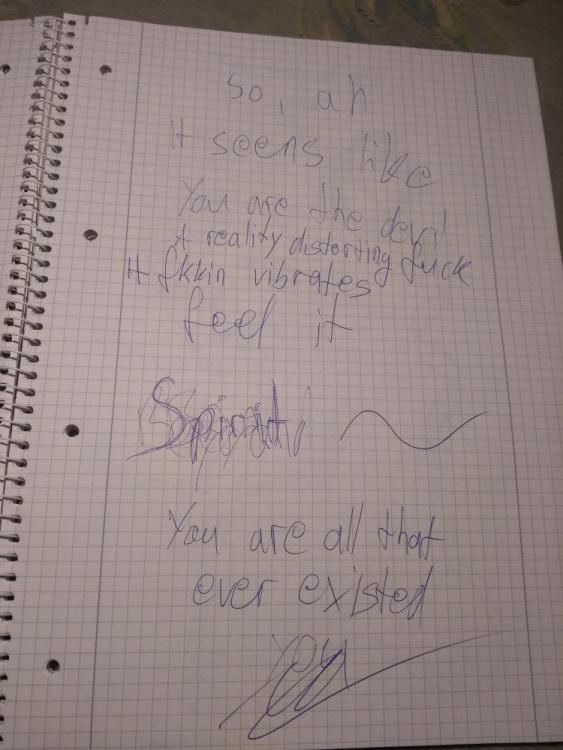 So, ah
It seens like
You are the devil
A reality distorting fuck
It fkkin vibrates
feel it
Spirit
You are all that
ever existed